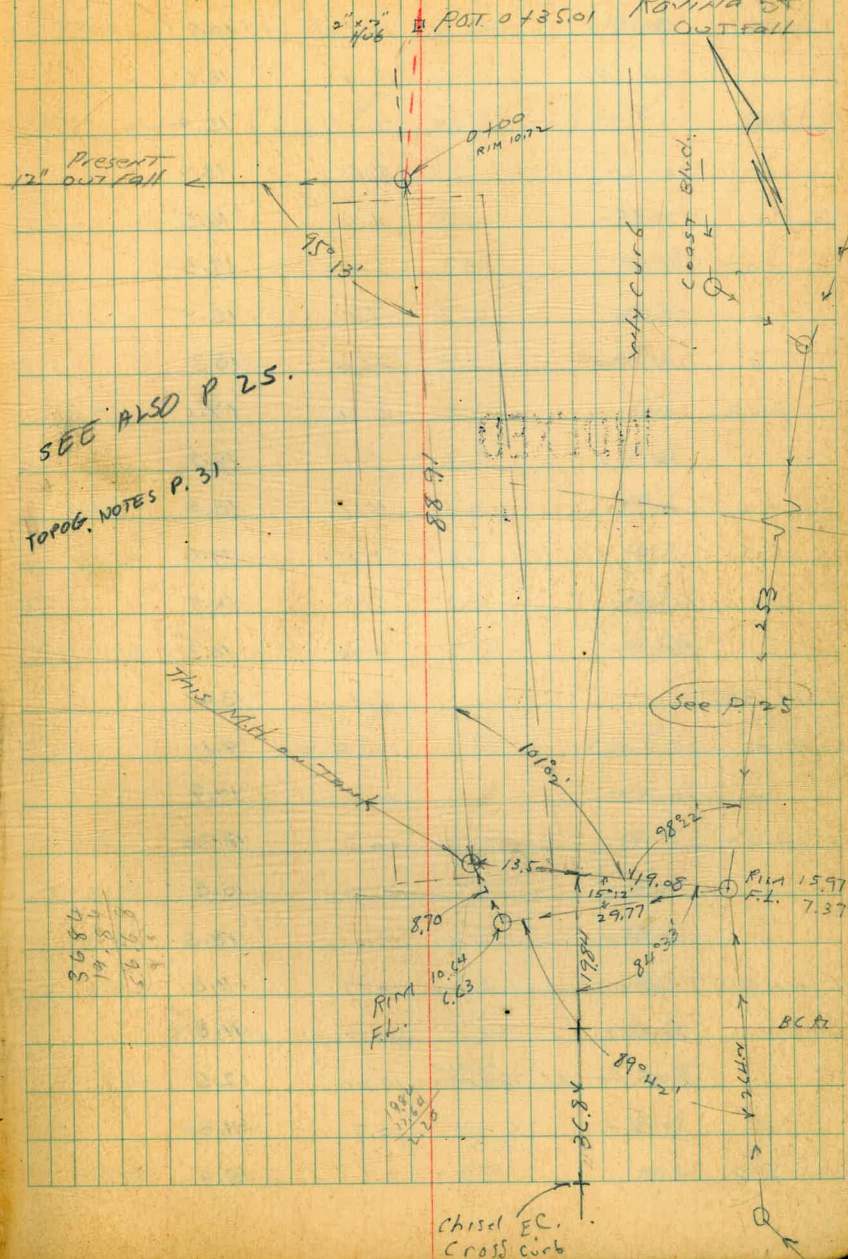 2" x 2"
Hub
P.O.T. 0+35.01
Ravina St
OUTFALL
0+00
RIM 10.72
Present
12" OUTFALL
95° 13'
Coast Blvd.
wly Curb
SEE ALSO P 25.
TOPOG. NOTES P. 31
88.91
253
See P. 25
This M.H. on Tank
101° 02'
98° 22'
13.5
19.08
15° 12'
29.77
RIM 15.97
F.L. 7.37
8.70
19.84
84° 33'
RIM 10.64
F.L. 6.63
36.84
19.84
56.68
BC
89° 42'
36.84
Chisel E.C.
Cross Curb